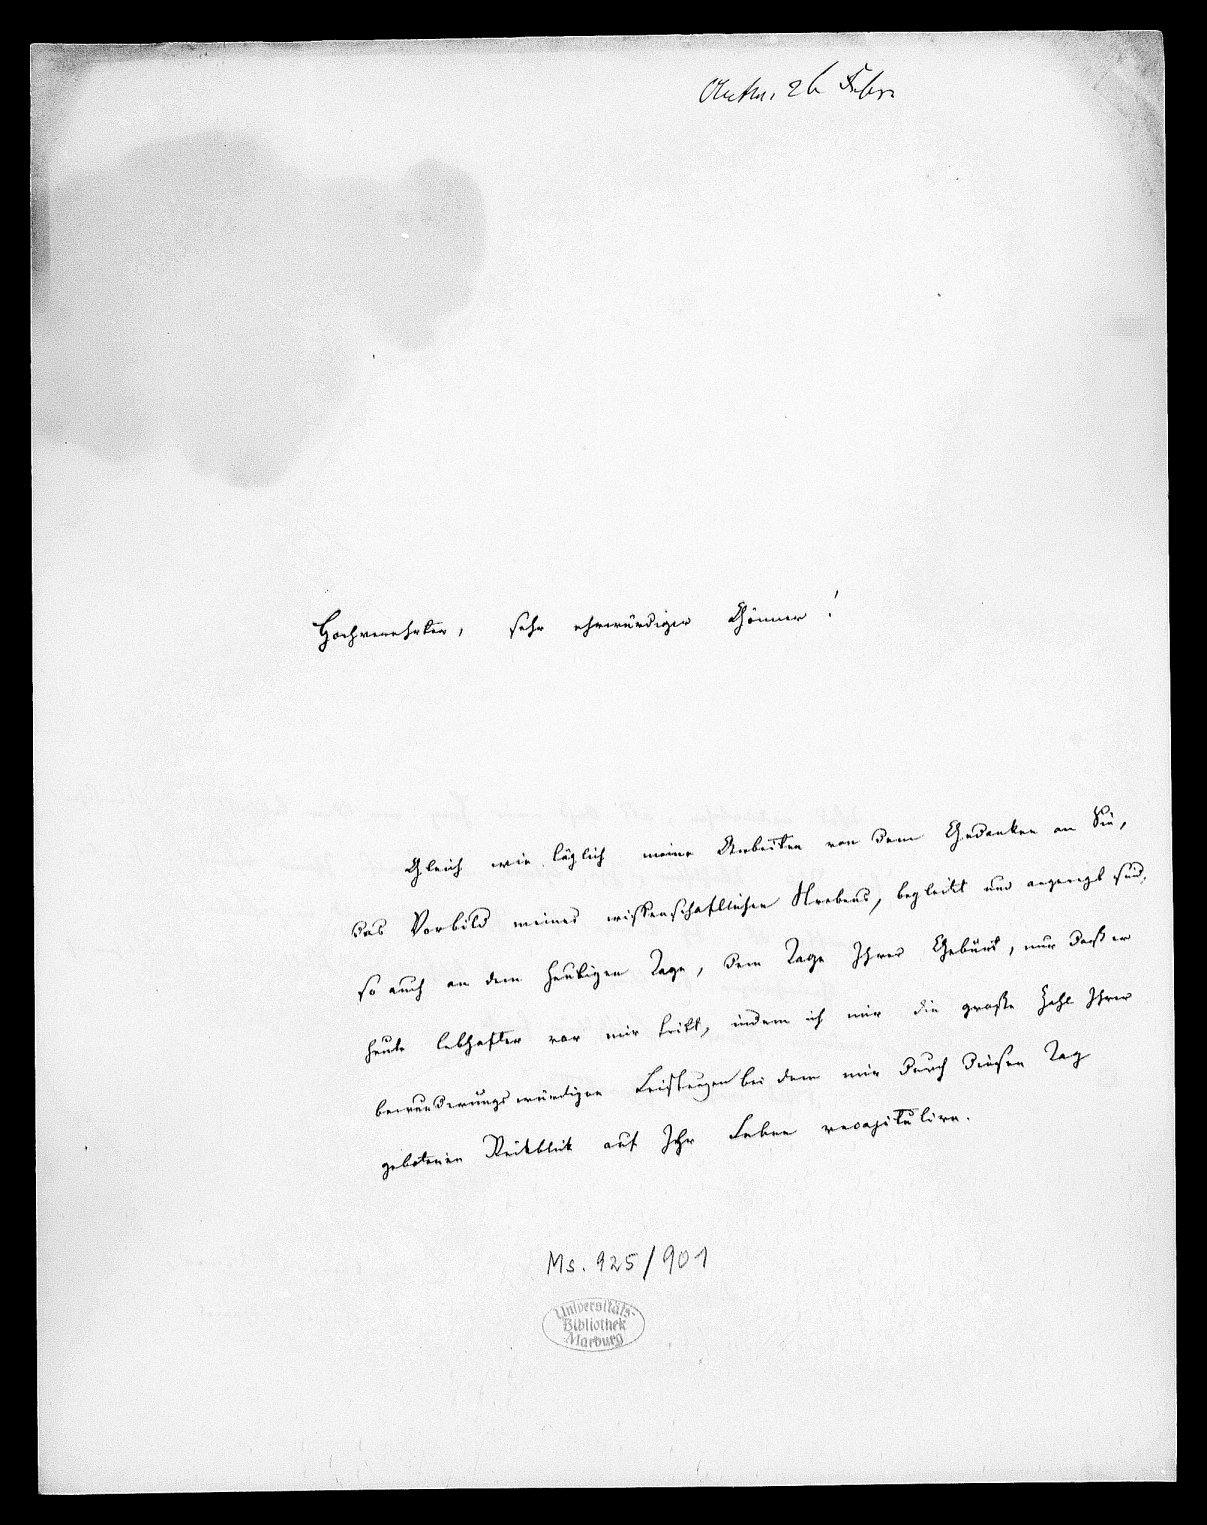 Antw. 26 Febr
Hochverehrter, sehr ehrwürdiger Gönner!
Gleich wie täglich meine Arbeiten von dem Gedanken an Sie,
das Vorbild meines wissenschaftlichen Strebens, begleitet und angeregt sind,
so auch an dem heutigen Tage, dem Tage Ihrer Geburt, nur daß er
heute lebhafter vor mir tritt, indem ich mir die große Zahl Ihrer
bewunderungswürdigen Leistungen bei dem mir durch diesen Tag
gebotenen Rückblick auf Ihr Leben recapitulire.
Ms. 925/901
Universitäts-
Bibliothek
Marburg